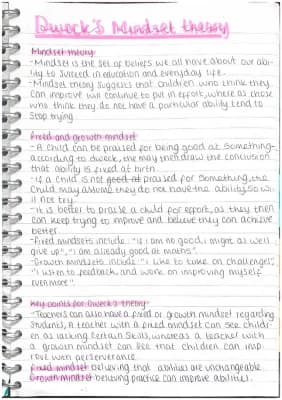 Dweck's Mindset theory
Mindset theory
-Mindset is the set of beliefs we all have about our abi-
lity to succeed in education and everyday life.
-Mindset theory suggests that children who think they
can improve will continue to put in effort, where as those
who think they do not have a particular ability tend to
stop trying
Fixed and growth mindset
-A child can be praised for being good at something-
according to dweck, the may then draw the conclusion
that ability is fixed at birth
-If a child is not good at praised for something, the
child may assume they do not have the ability so wi
ll not try.
-it is better to praise a child for effort, as they then
can keep trying to improve and believe they can achieve
better.
-Fixed mindsets include: "if I am no good, i might as well
give up", "i am already good at maths"
-Growth mindsets include: "I like to take on challenges",
"I listen to feedback, and work on improving myself
even more".
Key points for Dweck's theory
-Teachers can also have a fixed or growth mindset regarding
students, a teacher with a fixed mindset can see childr-
en as lacking certain skills, whereas a teacher with
a growth mindset can see that children can imp
rove with perserverance.
Fixed mindset believing that abilities are unchangeable
Growth mindset believing practice can improve abilities.